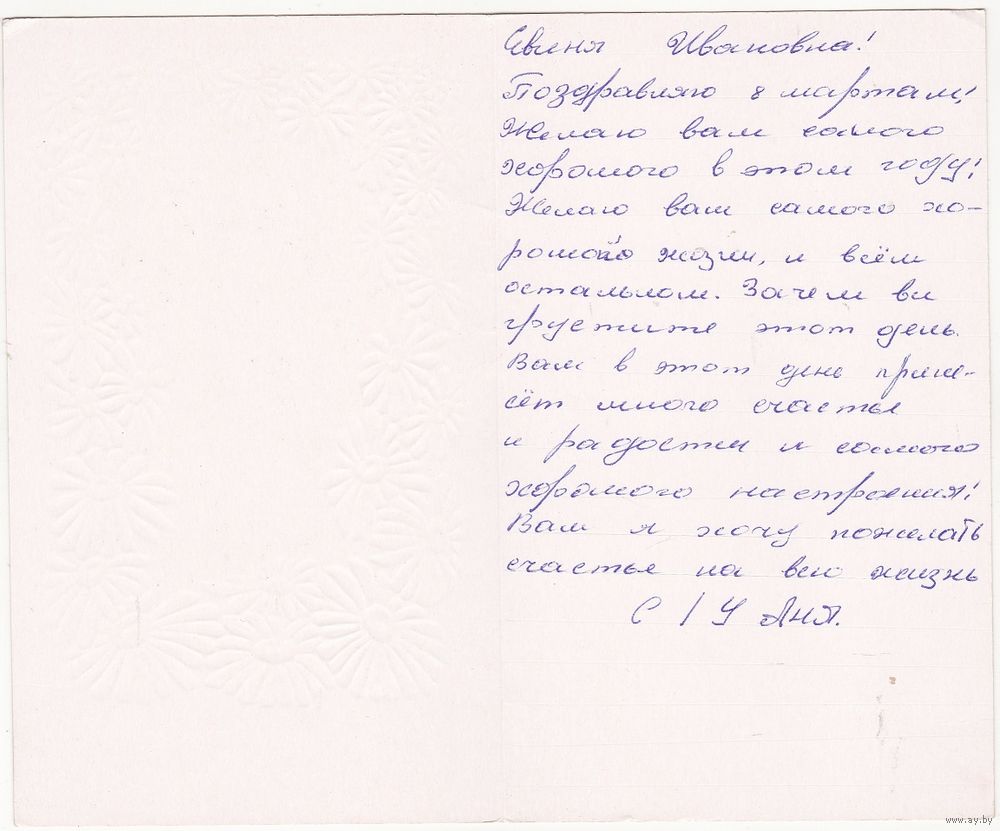 Ивановна!
Поздравляю 8 мартам!
Желаю вам самого
хорошого в этом году!
Желаю вам самого хо-
рошого жизни, и всём
остальном. Зачем ви
грустите этот день.
Вам в этот день прине-
сёт много счастье
и радости и самого
хорошого настроения!
Вам я хочу пожелать
счастье на всю жизнь
С / У Аня.
www.ay.by